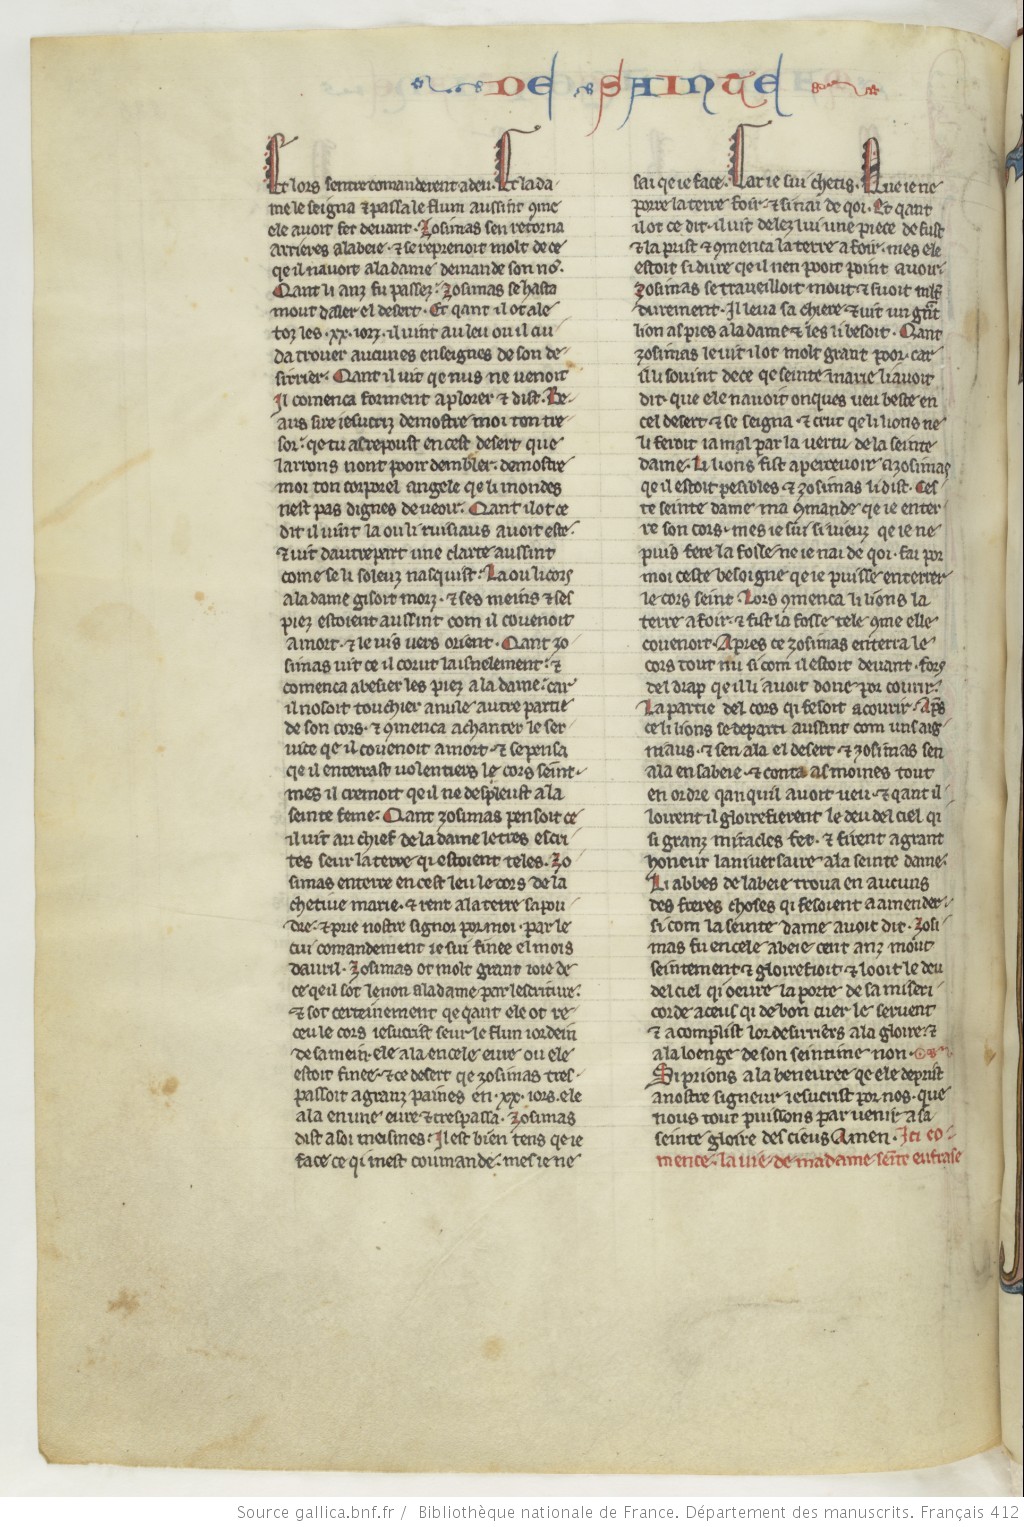 DE SAINTE
Et lors sentre comanderent a deu. Et la da-
me le seigna ⁊ passa le flum aussint ꝯme
ele avoit fet devant. Zosimas sen retorna
arrieres a labeie. ⁊ se reprenoit molt de ce
qe il navoit a la dame demande son nō.
Qant li anz fu passez. Zosimas se hasta
mout daler el desert. Et qant il ot ale
toz les .xx. iorz. il vint au leu ou il cui
da trover aucunes enseignes de son de-
sirrier. Qant il vit qe nus ne venoit
Il comenca forment a plorer ⁊ dist. Be-
aus sire iesucriz demostre moi ton tre-
sor. qe tu as repoust en cest desert que
larrons nont pooir dembler. demostre
moi ton corporel angele qe li mondes
nest pas dignes de veoir. Qant il ot ce
dit il vint la ou li ruisiaus avoit este.
⁊ vit dautre part une clarte aussint
come se li soleuz nasquist. La ou li cors
a la dame gisoit morz. ⁊ ses meins ⁊ ses
piez estoient aussint com il covenoit
a mort. ⁊ le vis vers orient. Qant zo
simas vit ce il corut la isnelement. ⁊
comenca a besier les piez a la dame. car
il nosoit touchier a nule autre partie
de son cors. ⁊ ꝯmenca a chanter le ser
vice qe il covenoit a mort. ⁊ se pensa
qe il enterrast volentiers le cors seint.
mes il cremoit qe il ne despleust a la
seinte feme. Qant zosimas pensoit ce
il vit au chief de la dame letres escri
tes seur la terre qi estoient teles. Zo
simas enterre en cest leu le cors de la
chetive marie. ⁊ rent a la terre sa pou
dre. ⁊ prie nostre signor por moi. par le
cui comandement ie sui finee el mois
davril. Zosimas ot molt grant ioie de
ce qe il sot le non a la dame par lescriture.
⁊ sot certeinement qe qant ele ot re
ceu le cors iesucrist seur le flum iordein
de sa mein. ele ala en cele eure ou ele
estoit finee. ⁊ ce desert qe zosimas tres-
passoit a granz paines en .xx. iors. ele
ala en une eure ⁊ trespassa. Zosimas
dist a soi meismes. Il est bien tens qe ie
face ce qi mest coumande. mes ie ne
sai qe ie face. Car ie sui chetis. Que ie ne
porre la terre foir. ⁊ si nai de qoi. Et qant
il ot ce dit. il vit delez lui une piece de fust
⁊ la prist ⁊ ꝯmenca la terre a foir. mes ele
estoit si dure qe il nen pooit point avoir.
Zosimas se traveilloit mout ⁊ suoit
durement. Il leva sa chiere ⁊ vit un grāt
lion as pies a la dame ⁊ les li besoit. Qant
zosimas le vit il ot molt grant poor. car
il li sovint de ce qe seinte marie li avoit
dit. que ele navoit onques veu beste en
cel desert ⁊ se seigna. ⁊ crut qe li lions ne
li feroit ia mal par la vertu de la seinte
dame. Li lions fist apercevoir a zosimas
qe il estoit pesibles ⁊ zosimas li dist. Ces
te seinte dame ma ꝯmande qe ie enter
re son cors. mes ie sui si vieuz qe ie ne
puis fere la fosse ne ie nai de qoi. fai por
moi ceste besoigne qe ie puisse enterrer
le cors seint. Lors ꝯmenca li lions la
terre a foir. ⁊ fist la fosse tele ꝯme elle
covenoit. Apres ce zosimas enterra le
cors tout nu si com il estoit devant. fors
del drap qe il li avoit done por covrir.
La partie del cors qi fesoit a covrir. Apͤs
ce li lions se departi aussint com uns aig
niaus. ⁊ sen ala el desert. ⁊ zosimas sen
ala en sabeie. ⁊ conta as moines tout
en ordre qanquil avoit veu. ⁊ qant il
loirent il gloirefierent le deu del ciel qi
si granz miracles fet. ⁊ firent a grant
honeur laniversaire a la seinte dame.
Li abbes de labeie trova en aucuns
des freres choses qi fesoient a amender.
si com la seinte dame avoit dit. Zosi
mas fu en cele abeie cent anz mout
seintement ⁊ gloirefioit. ⁊ looit le deu
del ciel qi oevre la porte de sa miseri
corde a ceus qi de bon cuer le servent
⁊ acomplist lor desirriers a la gloire. ⁊
a la loenge de son seintime non.
Si prions a la beneuree qe ele deprist
a nostre signeur iesucrist por nos. que
nous tout puissons parvenir a sa
seinte gloire des cieus Amen. Ici co-
mence. la vie de madame seīte eufrase
Source gallica.bnf.fr / Bibliothèque nationale de France. Département des manuscrits. Français 412